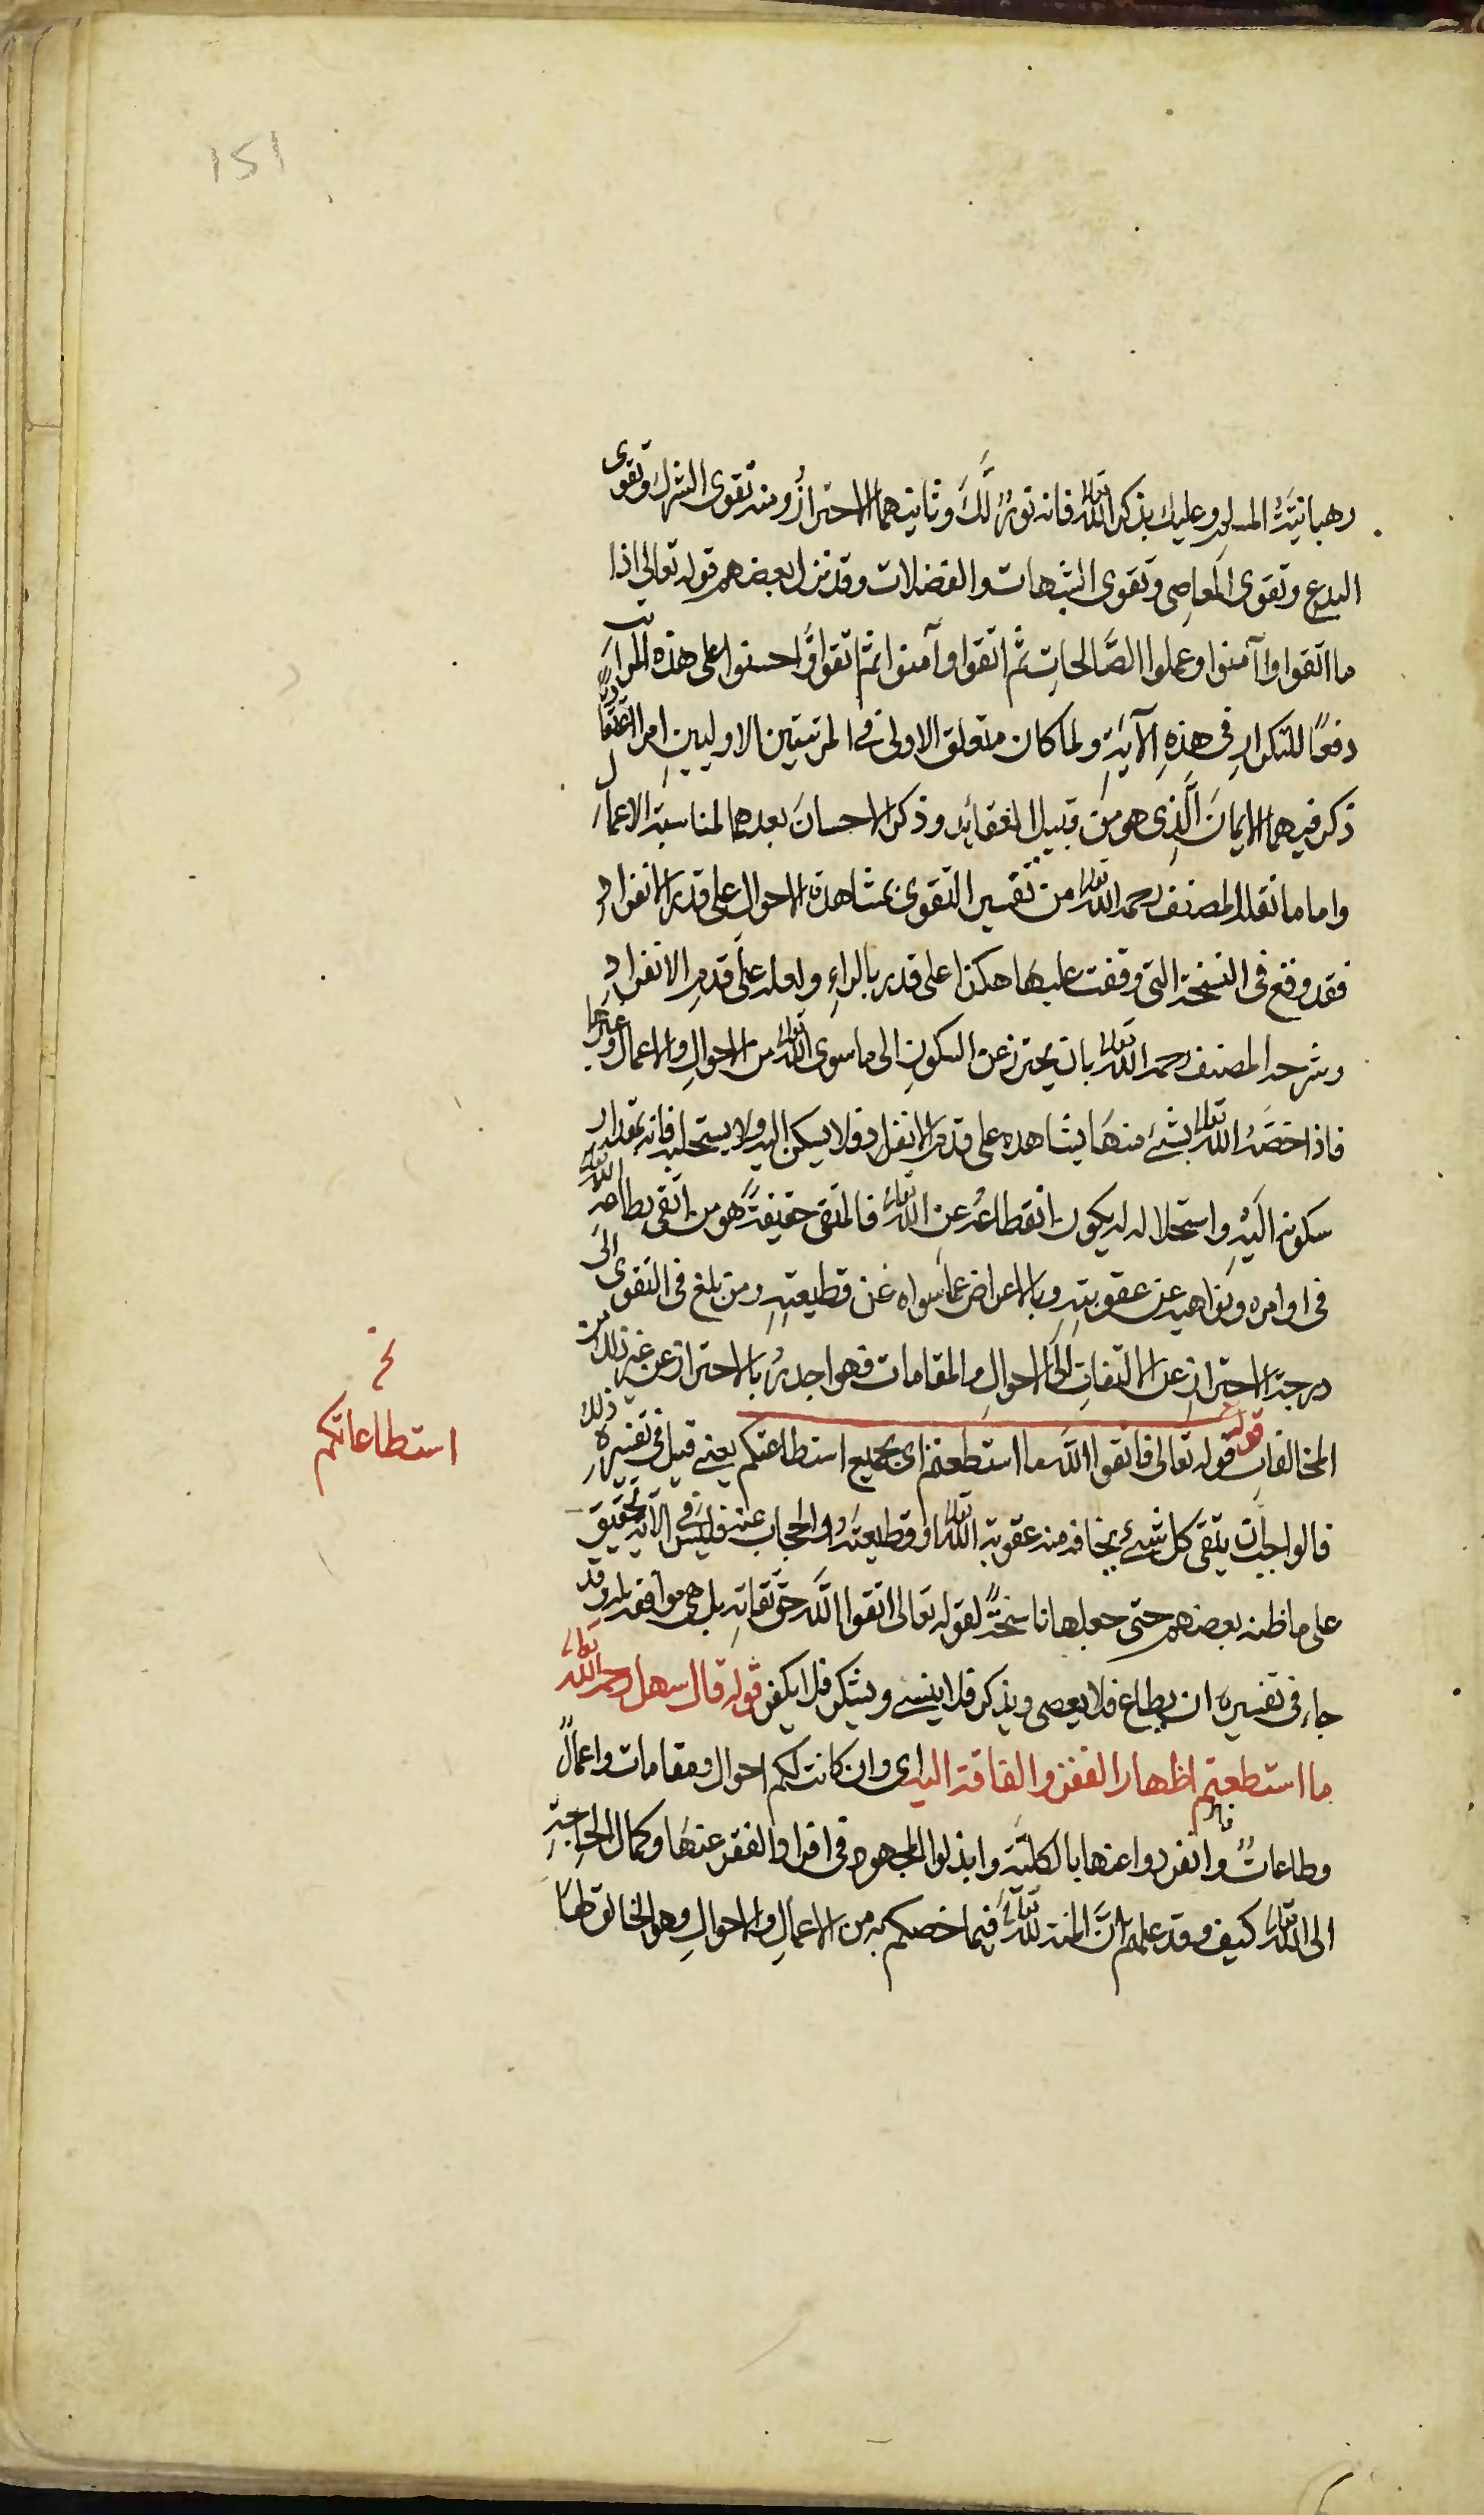 151
رهبانيَّةُ المسلمِ وعليك بذكر الله تعالى فانه نورٌ لَّكَ وثانيهما الاحترازُ ومنه تقوى الشرك وتقوى
البدع وتقوى المعاصى وتقوى الشبهات والفضلات وقد نزل بعضهم قوله تعالى اذا
ما اتقوا وآمنوا وعملوا الصَّالحاتِ ثم اتقوا وآمنوا ثم اتقوا وَّاحسنوا على هذه المراتب
دفعًا للتكرارِ فى هذِهِ الآيةِ ولما كان متعلق الاولى فى المرتبتين الاوليينِ امرا اعتقاديًّا
ذكر فيهما الايمانَ الَّذِى هو من قبيل العقائد وذكر الاحسانَ بعدهما لمناسبة الاعمال
واما ما نقله المصنف رحمه الله تعالى من تفسير التقوى بمشاهدة الاحوالِ على قدر الانفرادِ
فقد وقع فى النسخة التى وقفت عليها هكذا على قدر بالراءِ ولعله على قدمِ الانفرادِ
وشرحه المصنف رحمه الله تعالى بان يحترز عن السكونِ الى ما سوى الله تعالى من الاحوالِ والاعمال وغيرها
فاذا خصَّهُ الله تعالى بشئ منها يشاهده على قدم الانفراد فلا يسكن اليه ولا يستحليه فانه بمقدار
سكونه اليْهِ واستحلاله له يكون انقطاعُه عنِ الله تعالى فالمتقى حقيقةً هو من اتقى بطاعةِ الله تعالى
فى اوامره ونواهيه عن عقوبتِهِ وبالاعراض عما سواه عن قطيعتِهِ ومن بلغ فى التقوى الى
درجة الاحترازِ عن الالتفاتِ الى الاحوالِ والمقامات فهو اجدرُ بالاحتراز عن غير ذلك من
المخالفاتِ قوله قوله تعالى فاتقوا الله ما استطعتم اى بجميع استطاعتكم يعنى قيل فى تفسيره ذلك
نخ
استطاعاتكم
فالواجب ان يتقى كل شئ يخافه منه عقوبة الله تعالى او قطيعته والحجاب عنه فليس فى الآية تحقيق
على ما ظنه بعضهم حتى جعلها ناسخةً لقوله تعالى اتقوا الله حق تقاتِهِ بل هى موافقة له وقد
جاء فى تفسيره ان يطاع فلا يعصى ويذكر فلا ينسى ويشكر فلا يكفر قوله قال سهل رحمه الله تعالى
ما استطعتم اظهار الفقر والفاقة اليه اى وان كانت لكم احوال ومقامات واعمالٌ
وطاعاتٌ وانفردوا عنها بالكلية وابذلوا المجهود فى افراد الفقر عنها وكمال الحاجةِ
الى الله تعالى كيف وقد علمتم انَّ المنة لله تعالى فيما خصكم به من الاعمالِ والاحوالِ وهو الخالق لها